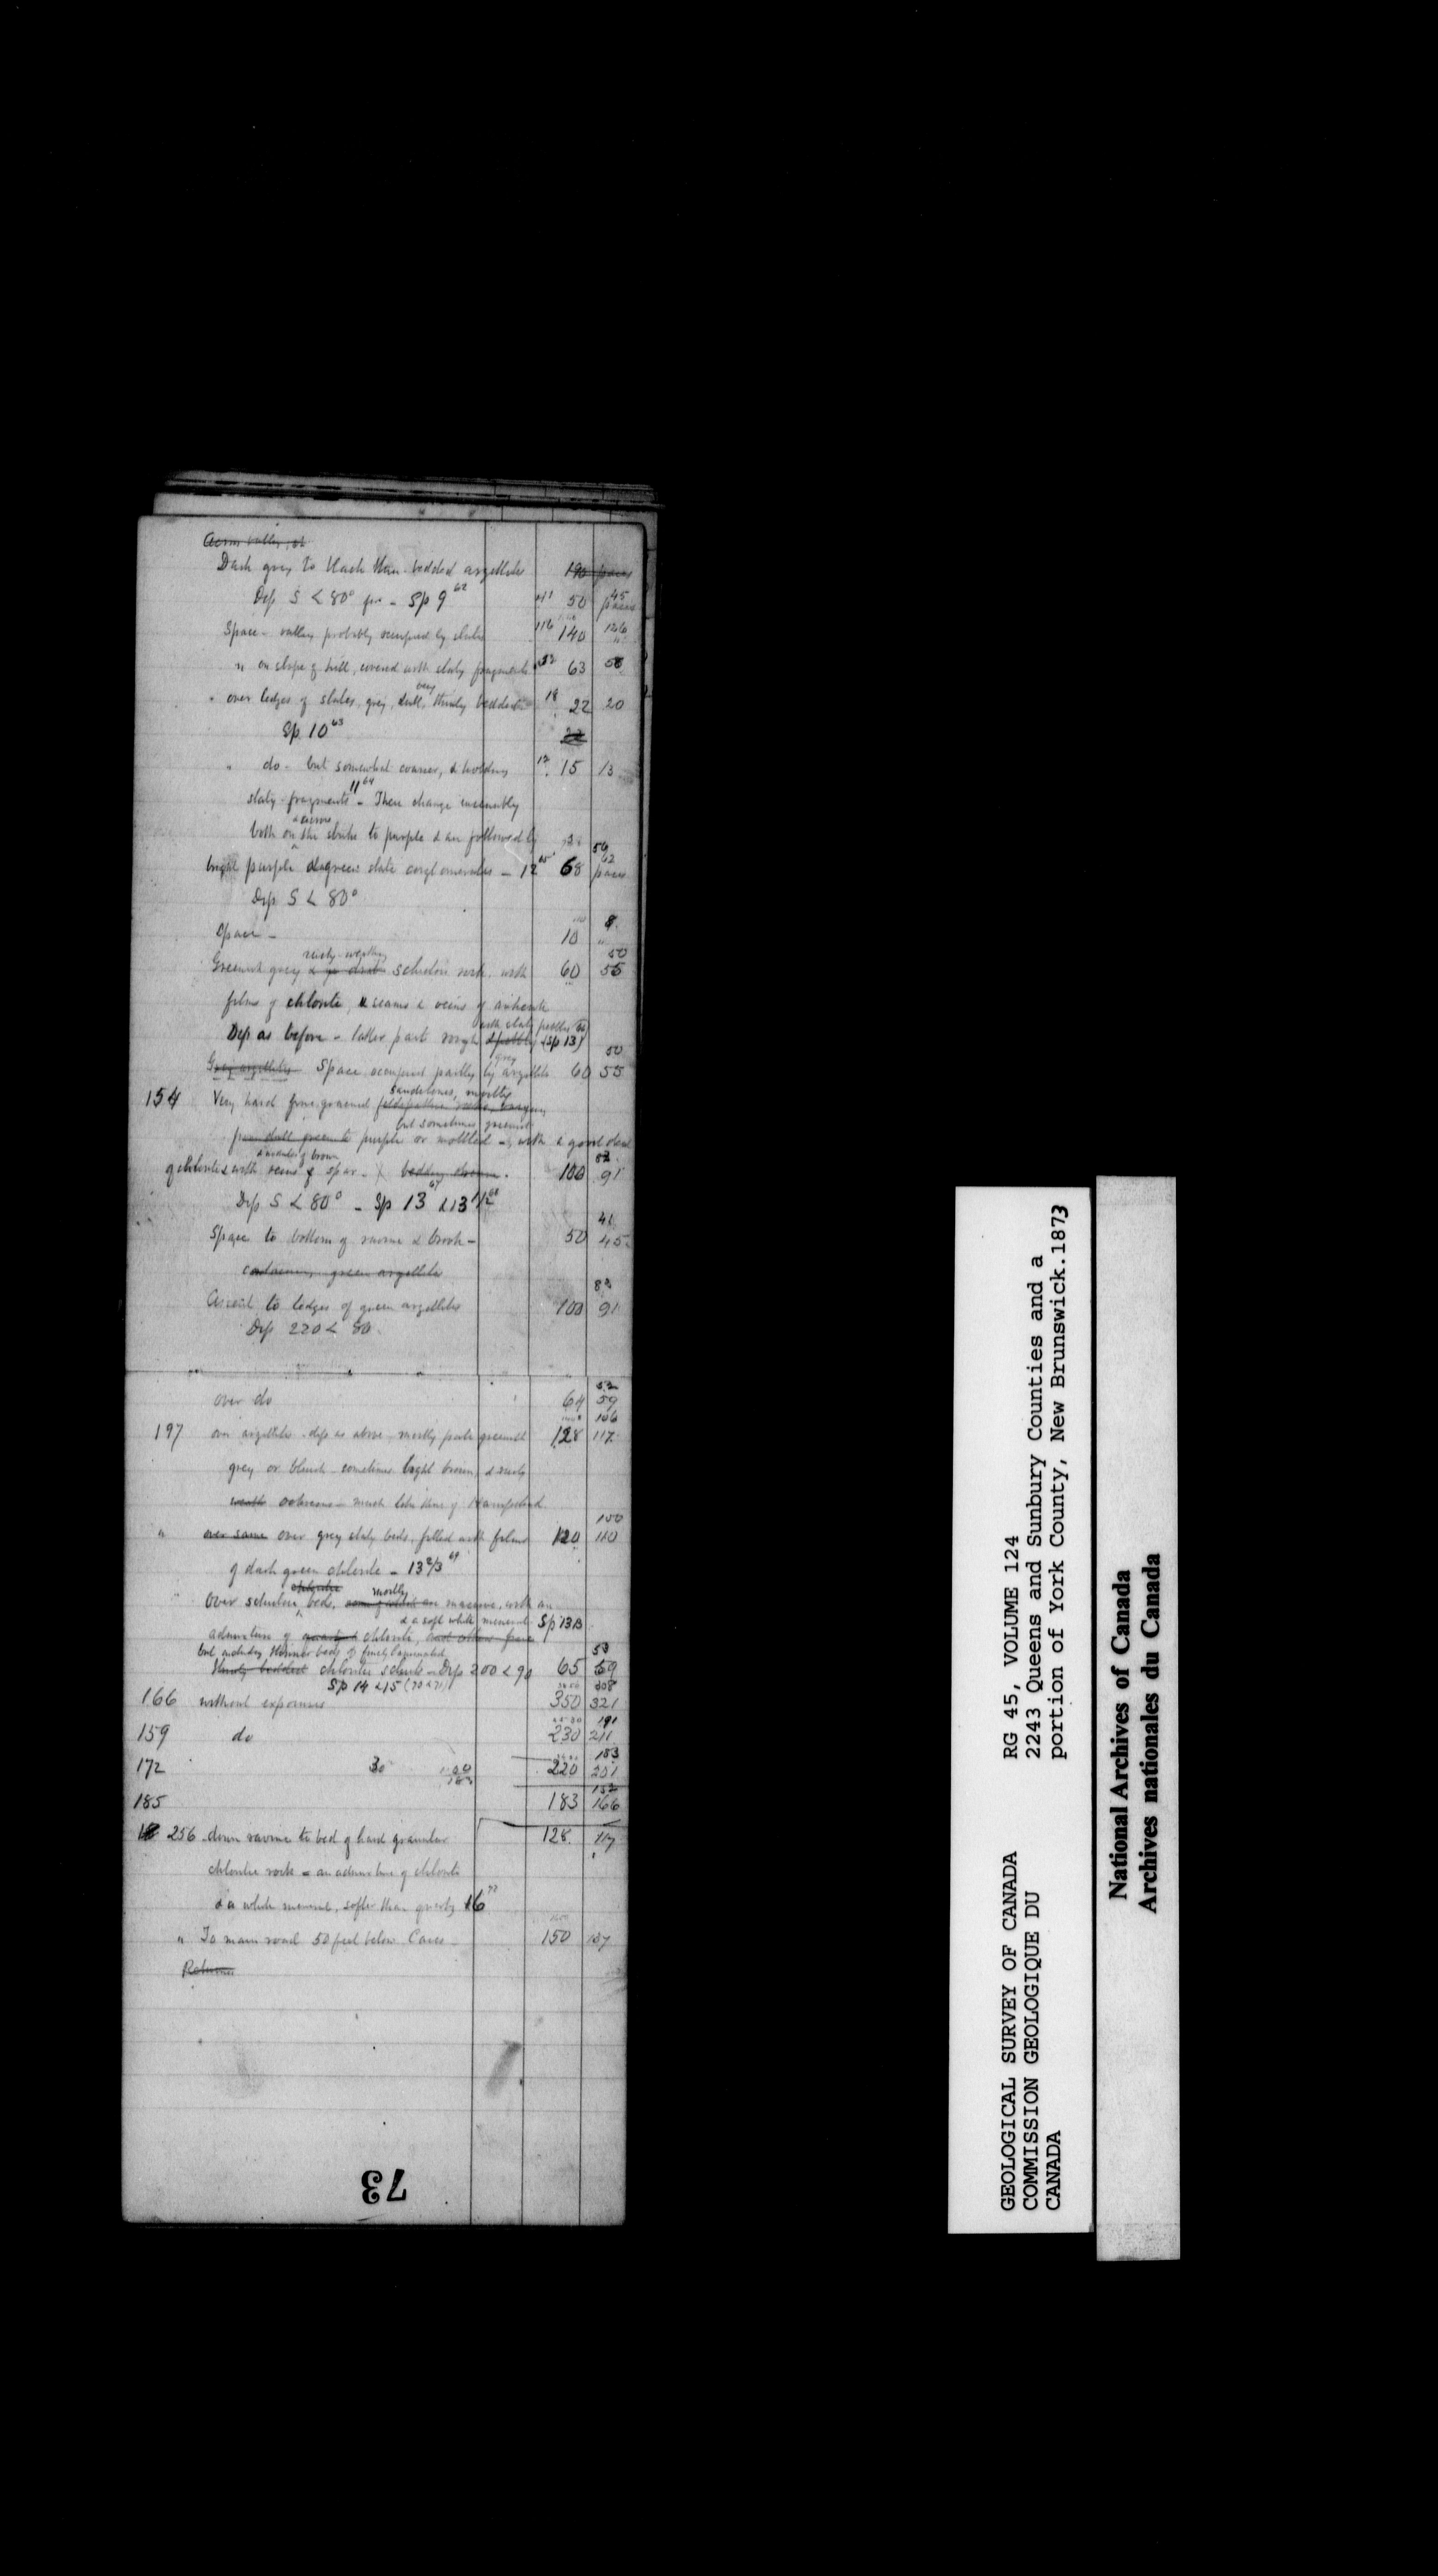 Dark grey to black thin bedded argillites 190 paces
Dip S < 80° for - Sp 9 62 41 50 45 paces
Space - valley probably occupied by slates 116 140 126
" on slope of hill, covered with slaty fragments 52 63 58
" over ledges of slates, grey, dull, very thinly bedded 18 22 20
Sp. 10 63
" do - but somewhat coarser, & holding 12 15 13
slaty fragments 11 64 - These change insensibly
both on & across the strike to purple & are followed by 56
bright purple & green slate conglomerates - 12 65 68 62 paces
Dip S < 80°
Space - 10 8 "
Greenish grey schistose rock with 60 50 55
films of chlorite, & seams & veins of
Dip as before - latter part rough with slaty pebbles (Sp 13) 66
Grey argillites Space occupied partly by grey argillite 60 50 55
154 Very hard fine grained sandstones, mostly
but sometimes greenish
from dull green to purple or mottled -, with a good deal
of chlorite & with veins of spar - 100 82 91
Dip S < 80° - Sp 13 67 & 13 1/2 68
Space to bottom of ravine & brook - 50 41 45
containing green argillite
Ascent to ledges of green argillites 100 82 91
Dip 220 < 80
over do 64 52 59
197 over argillites - dip as above mostly pale greenish 128 106 117
grey or bluish sometimes light brown, & rusty
much like those of Hampstead
" over same over grey slaty beds, filled with films 120 100 110
of dark green chlorite - 13 2/3 69
Over schistose chloritic beds, mostly massive, with an
admixture of chlorite, & a soft white mineral Sp 13B
but including thinner beds of finely laminated
Thinly bedded chloritic schists - Dip 200 < 90 65 53 59
Sp 14 & 15 (70 & 71)
166 without exposures 350 321
159 do 230 191 211
172 30 220 183 201
185 183 152 166
256 down ravine to bed of hard granular 128 117
chloritic rock = an admixture of chlorite
& a white mineral, softer than quartz 16 72
" To main road 50 feet below 150 137
Returns
73
GEOLOGICAL SURVEY OF CANADA
COMMISSION GEOLOGIQUE DU
CANADA
RG 45, VOLUME 124
2243 Queens and Sunbury Counties and a
portion of York County, New Brunswick.1873
National Archives of Canada
Archives nationales du Canada